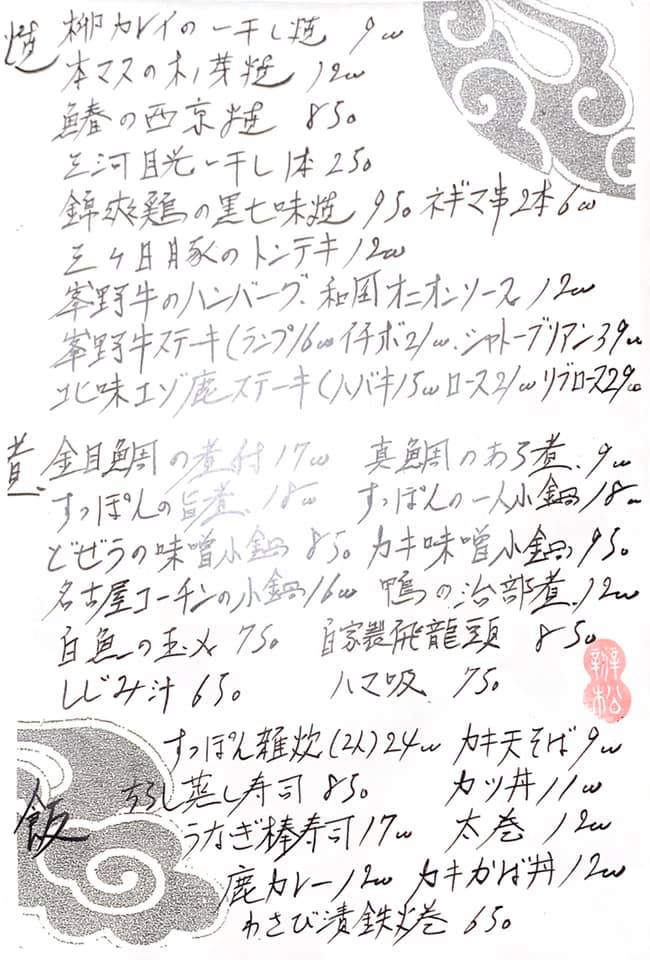 焼 柳カレイの一干し焼 900
本マスの木ノ芽焼 1200
鰆の西京焼 850
三河目光一干し1本 250
錦爽鶏の黒七味焼 950 ネギマ串2本600
三ヶ日豚のトンテキ 1200
峯野牛のハンバーグ、和風オニオンソース 1200
峯野牛ステーキ(ランプ1600 イチボ2100、シャトーブリアン3900
北味エゾ鹿ステーキ(ハバキ1500 ロース2100 リブロース2900
煮 金目鯛の煮付 1700 真鯛のあら煮 900
すっぽんの旨煮 1800 すっぽんの一人小鍋 1800
どぜうの味噌小鍋 850 カキ味噌小鍋 950
名古屋コーチンの小鍋 1600 鴨の治部煮 1200
白魚の玉〆 750 自家製飛龍頭 850
しじみ汁 650 ハマ吸 750
辨松
飯 すっぽん雑炊(2人)2400 カキ天そば 900
ちらし蒸し寿司 850 カツ丼 1100
うなぎ棒寿司 1700 太巻 1200
鹿カレー 1200 カキかば丼 1200
わさび漬鉄火巻 650